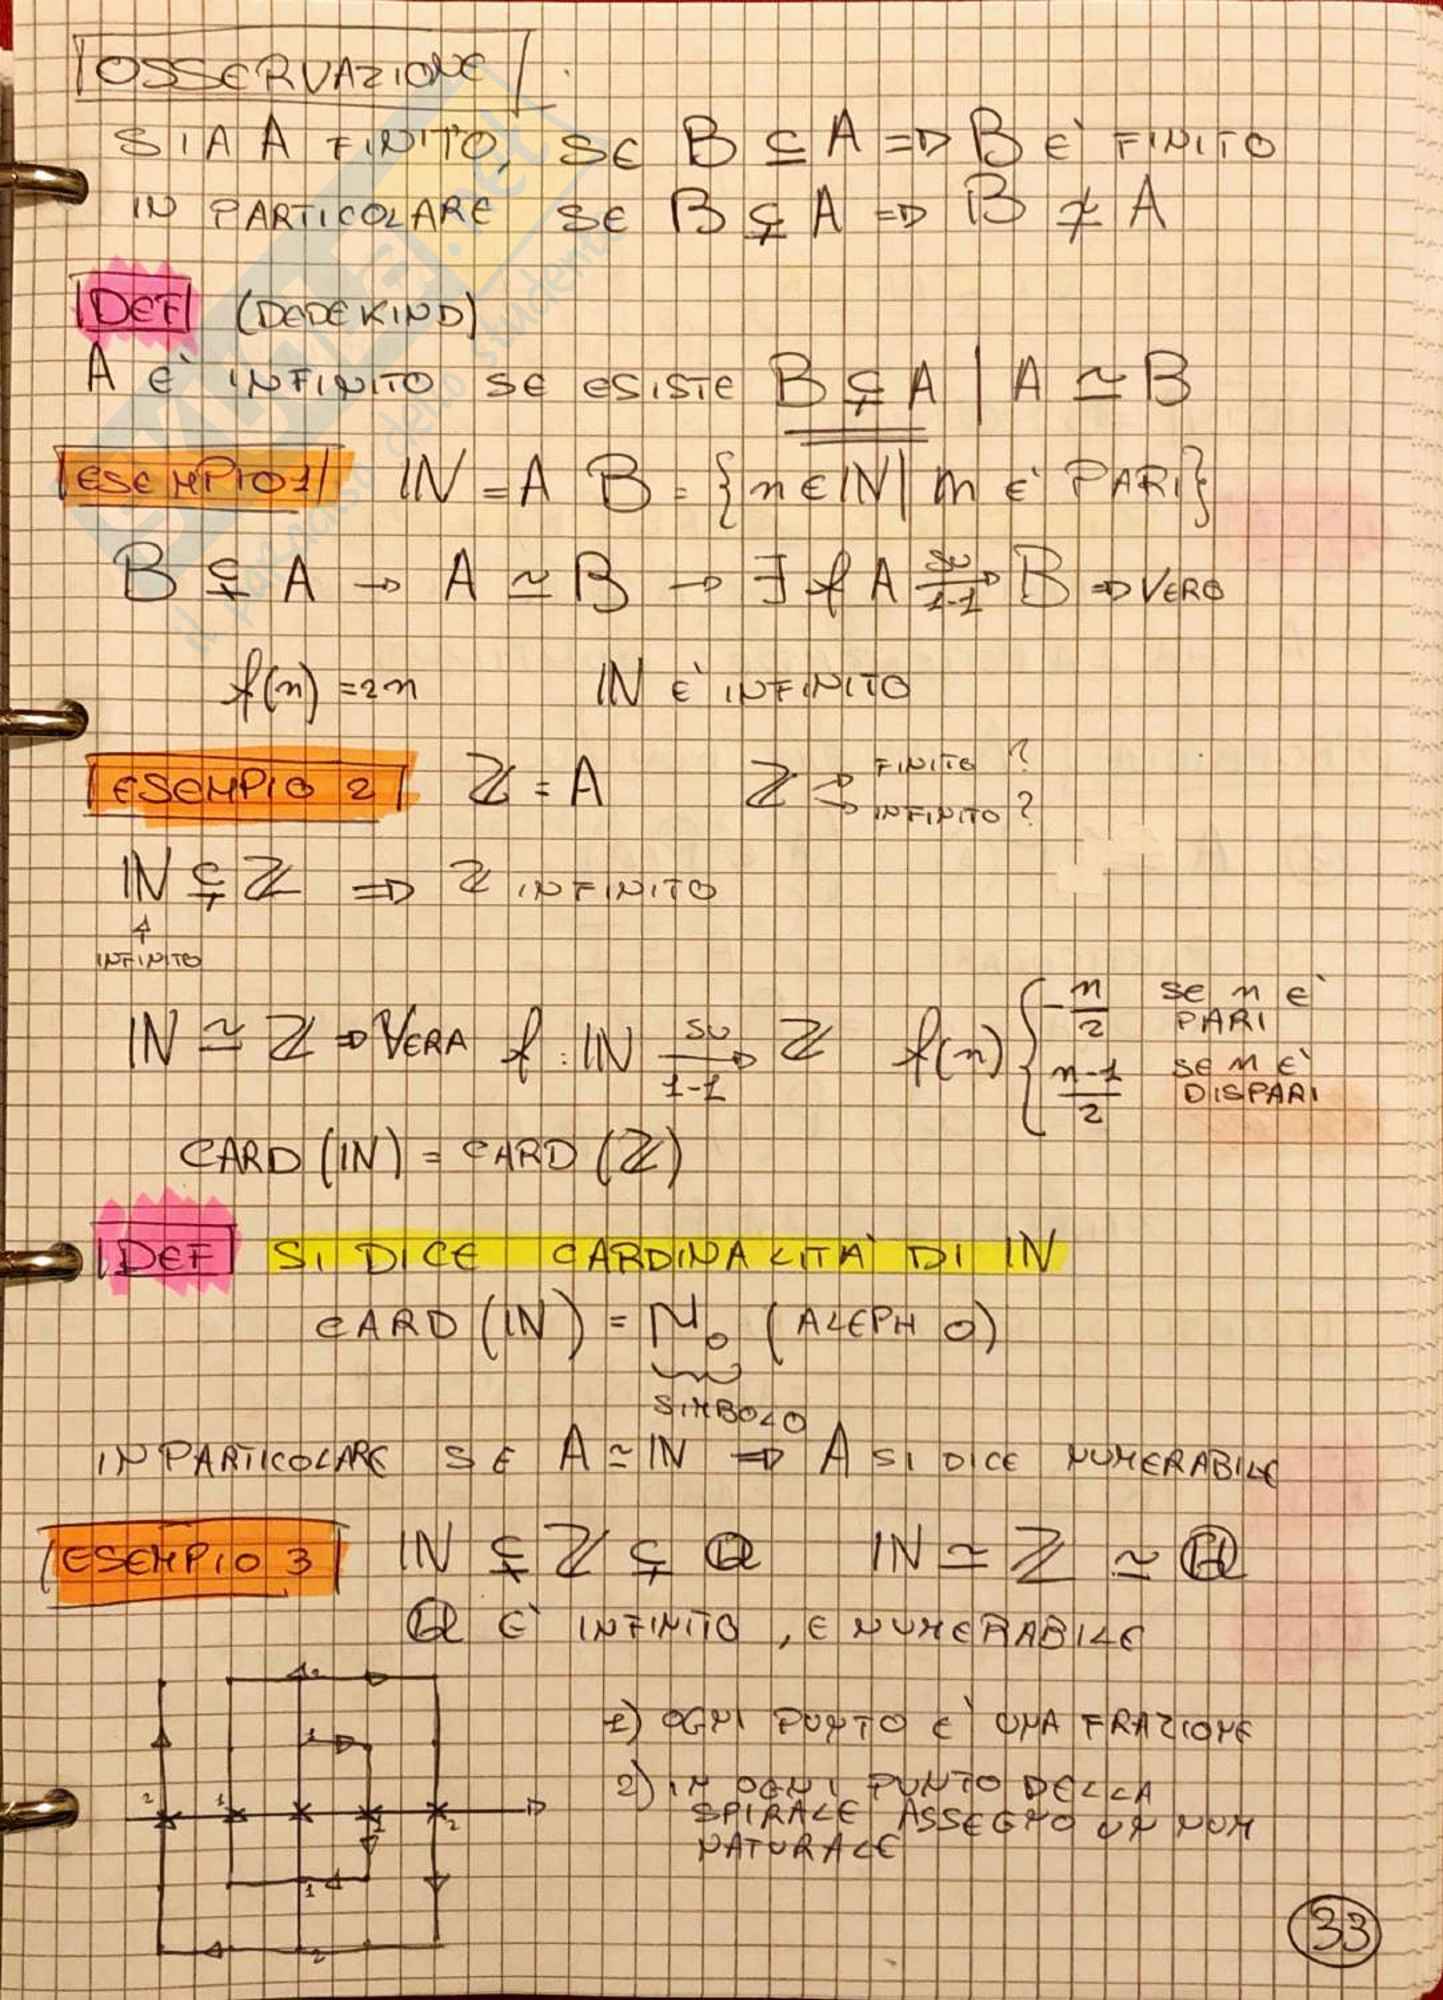 OSSERVAZIONE
SIA A FINITO, SE B ⊆ A => B E' FINITO
IN PARTICOLARE SE B ⊊ A => B ≄ A
DEF (DEDEKIND)
A E' INFINITO SE ESISTE B ⊊ A | A ≃ B
ESEMPIO 1 IN = A B = {n ∈ IN | n E' PARI}
B ⊊ A → A ≃ B → ∃ f A su/1-1→ B => VERO
f(n) = 2n IN E' INFINITO
ESEMPIO 2 ℤ = A ℤ → FINITO ?
→ INFINITO ?
IN ⊊ ℤ => ℤ INFINITO
↑
INFINITO
IN ≃ ℤ => VERA f : IN su/1-1→ ℤ f(n) { -n/2 SE n E' PARI
n-1/2 SE n E' DISPARI
CARD (IN) = CARD (ℤ)
DEF SI DICE CARDINALITA' DI IN
CARD (IN) = ℵ₀ (ALEPH 0)
SIMBOLO
IN PARTICOLARE SE A ≃ IN => A SI DICE NUMERABILE
ESEMPIO 3 IN ⊊ ℤ ⊊ ℚ IN ≃ ℤ ≃ ℚ
ℚ E' INFINITO, E NUMERABILE
1) OGNI PUNTO E' UNA FRAZIONE
2) IN OGNI PUNTO DELLA
SPIRALE ASSEGNO UN NUM
NATURALE
2 1 1 2
2
1
1
2
33